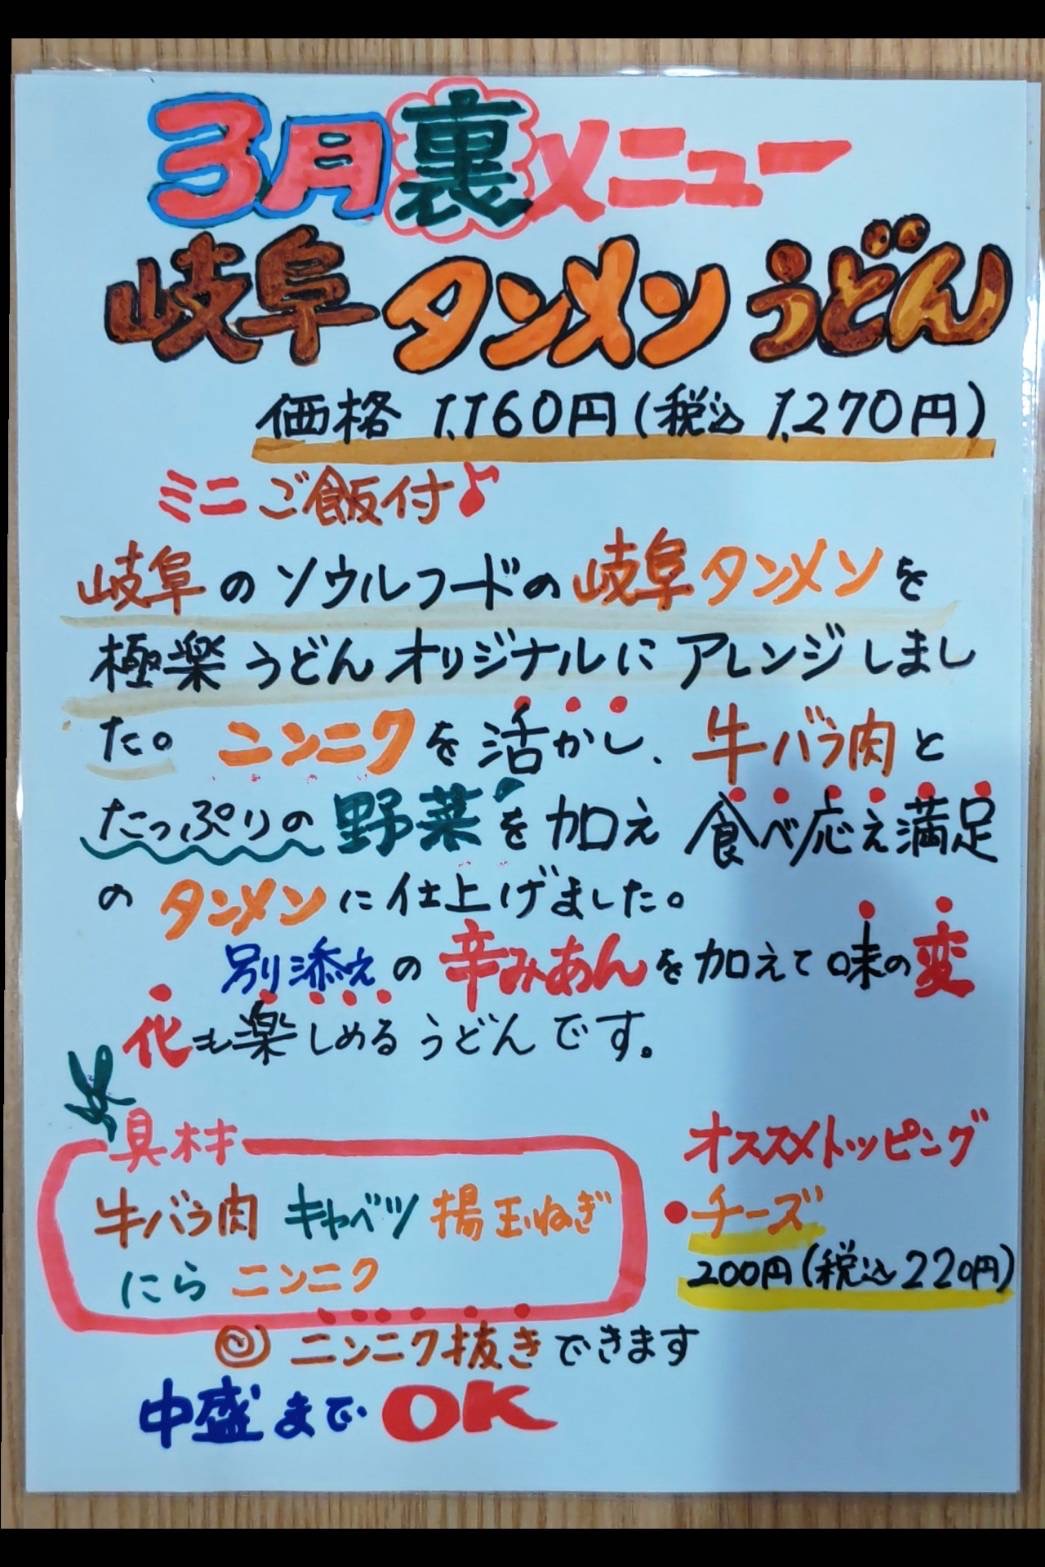 3月裏メニュー
岐阜タンメンうどん
価格 1,160円(税込 1,270円)
ミニご飯付♪
岐阜のソウルフードの岐阜タンメンを
極楽うどんオリジナルにアレンジしまし
た。ニンニクを活かし、牛バラ肉と
たっぷりの野菜を加え 食べ応え満足
のタンメンに仕上げました。
別添えの辛みあんを加えて味の変
化も楽しめるうどんです。
具材
牛バラ肉 キャベツ 揚玉ねぎ
にら ニンニク
オススメトッピング
●チーズ
200円(税込220円)
ニンニク抜きできます
中盛までOK